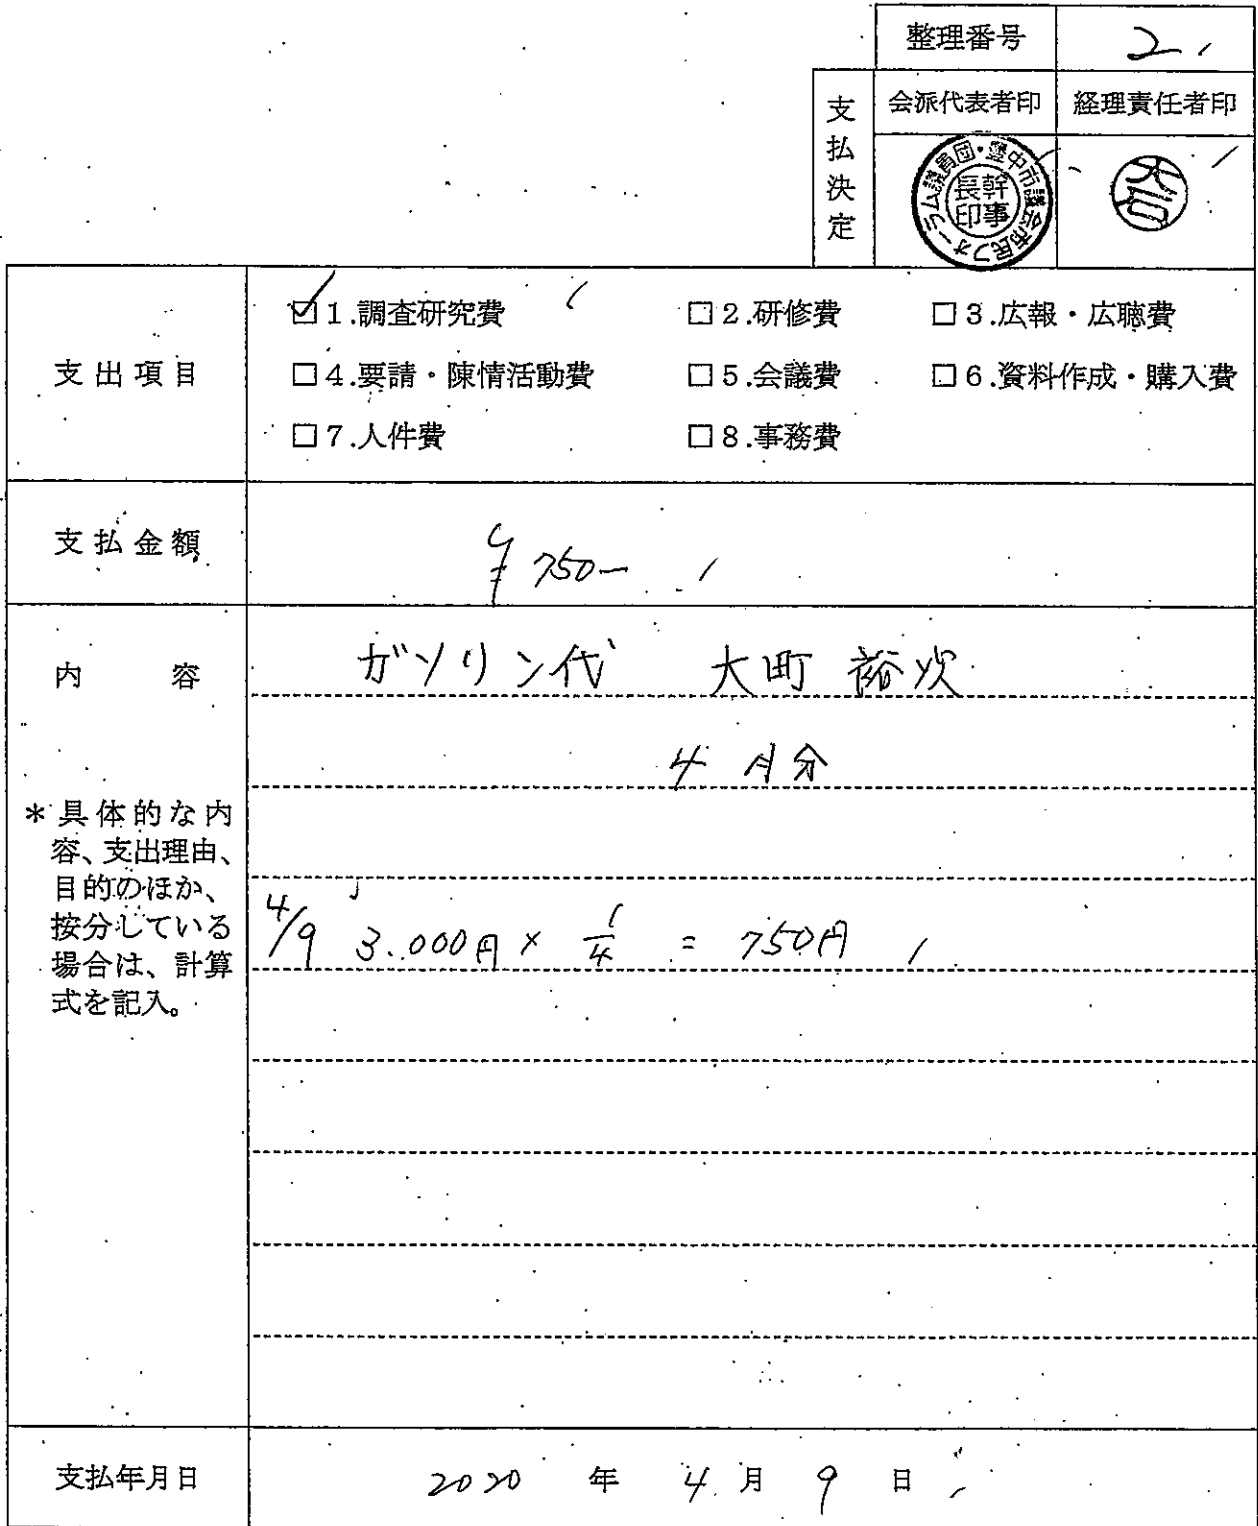 整理番号 2
支払決定
会派代表者印 経理責任者印
豊中市議会市民フォーラム議員団・
幹事長印
支出項目
☑1.調査研究費 □2.研修費 □3.広報・広聴費
□4.要請・陳情活動費 □5.会議費 □6.資料作成・購入費
□7.人件費 □8.事務費
支払金額 ¥750-
内容 ガソリン代 大町 裕次
4月分
＊具体的な内
容、支出理由、
目的のほか、
按分している
場合は、計算
式を記入。
4/9 3.000円 × 1/4 = 750円
支払年月日 2020年4月9日